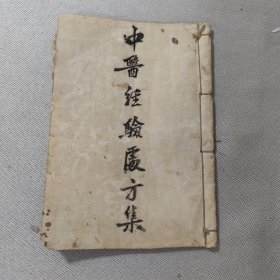 中醫經驗處方集